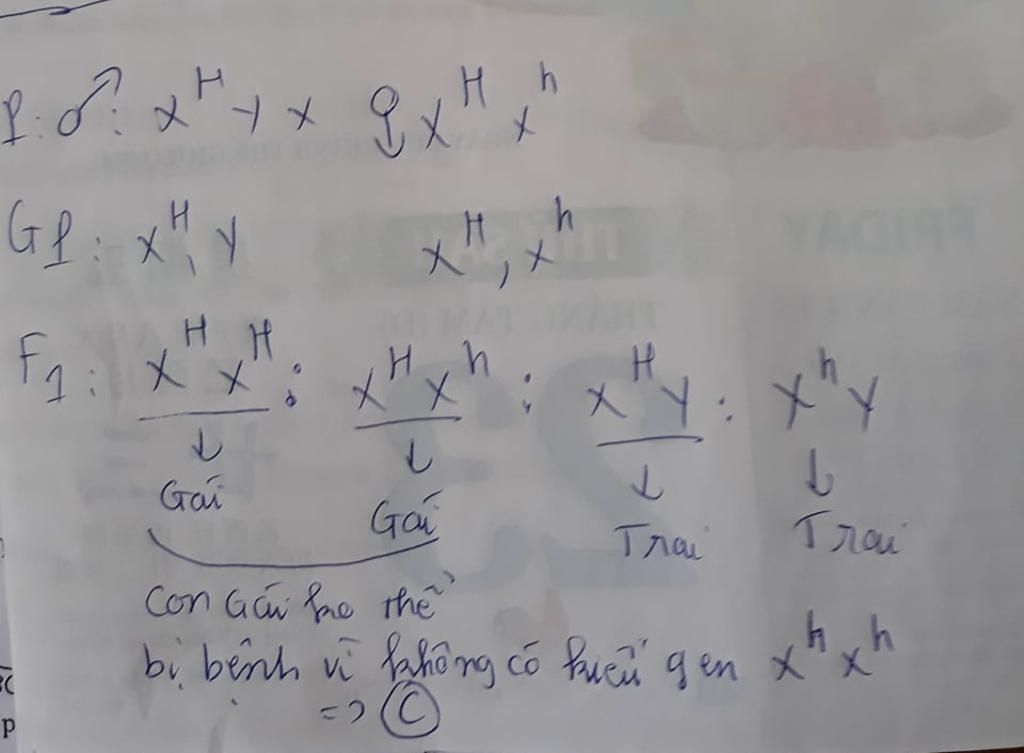 P: ♂: X^H Y x ♀ X^H X^h
GP: X^H, Y X^H, X^h
F1: X^H X^H : X^H X^h : X^H Y : X^h Y
↓ ↓ ↓ ↓
Gái Gái Trai Trai
con Gái ko thể
bị bệnh vì không có kiểu gen X^h X^h
=> C